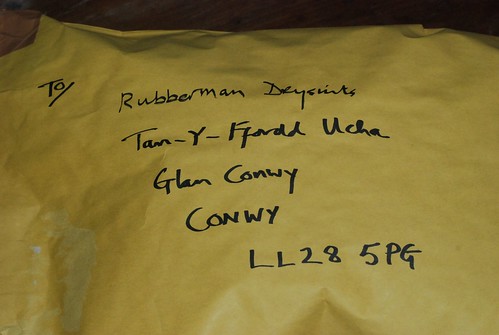 To/ Rubberman Drysuits
Tan-Y-Ffordd Ucha
Glan Conwy
CONWY
LL28 5PG